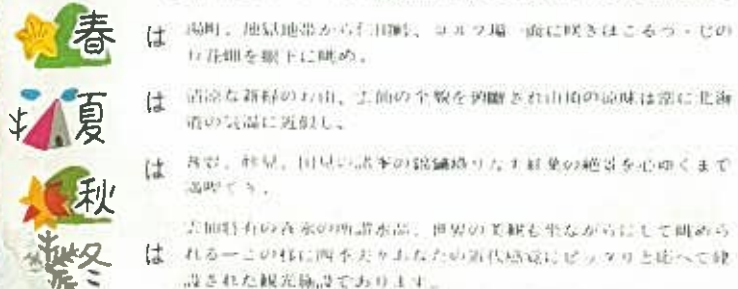 春は 湯町、地獄地帯から仁田峠、ゴルフ場一面に咲きほこるつゝじの
お花畑を眼下に眺め。
夏は 清涼な新緑のお山、雲仙の全貌を満喫され山頂の涼味は常に北海
道の気温に近似し、
秋は 普賢、妙見、国見の諸峯の錦繍織りなす紅葉の絶景を心ゆくまで
満喫でき、
冬は 雲仙特有の 霧氷の所謂氷晶、世界の美観も坐ながらにして眺めら
れる—この様に四季夫々あなたの近代感覚にピッタリと応へて建
設された観光施設であります。